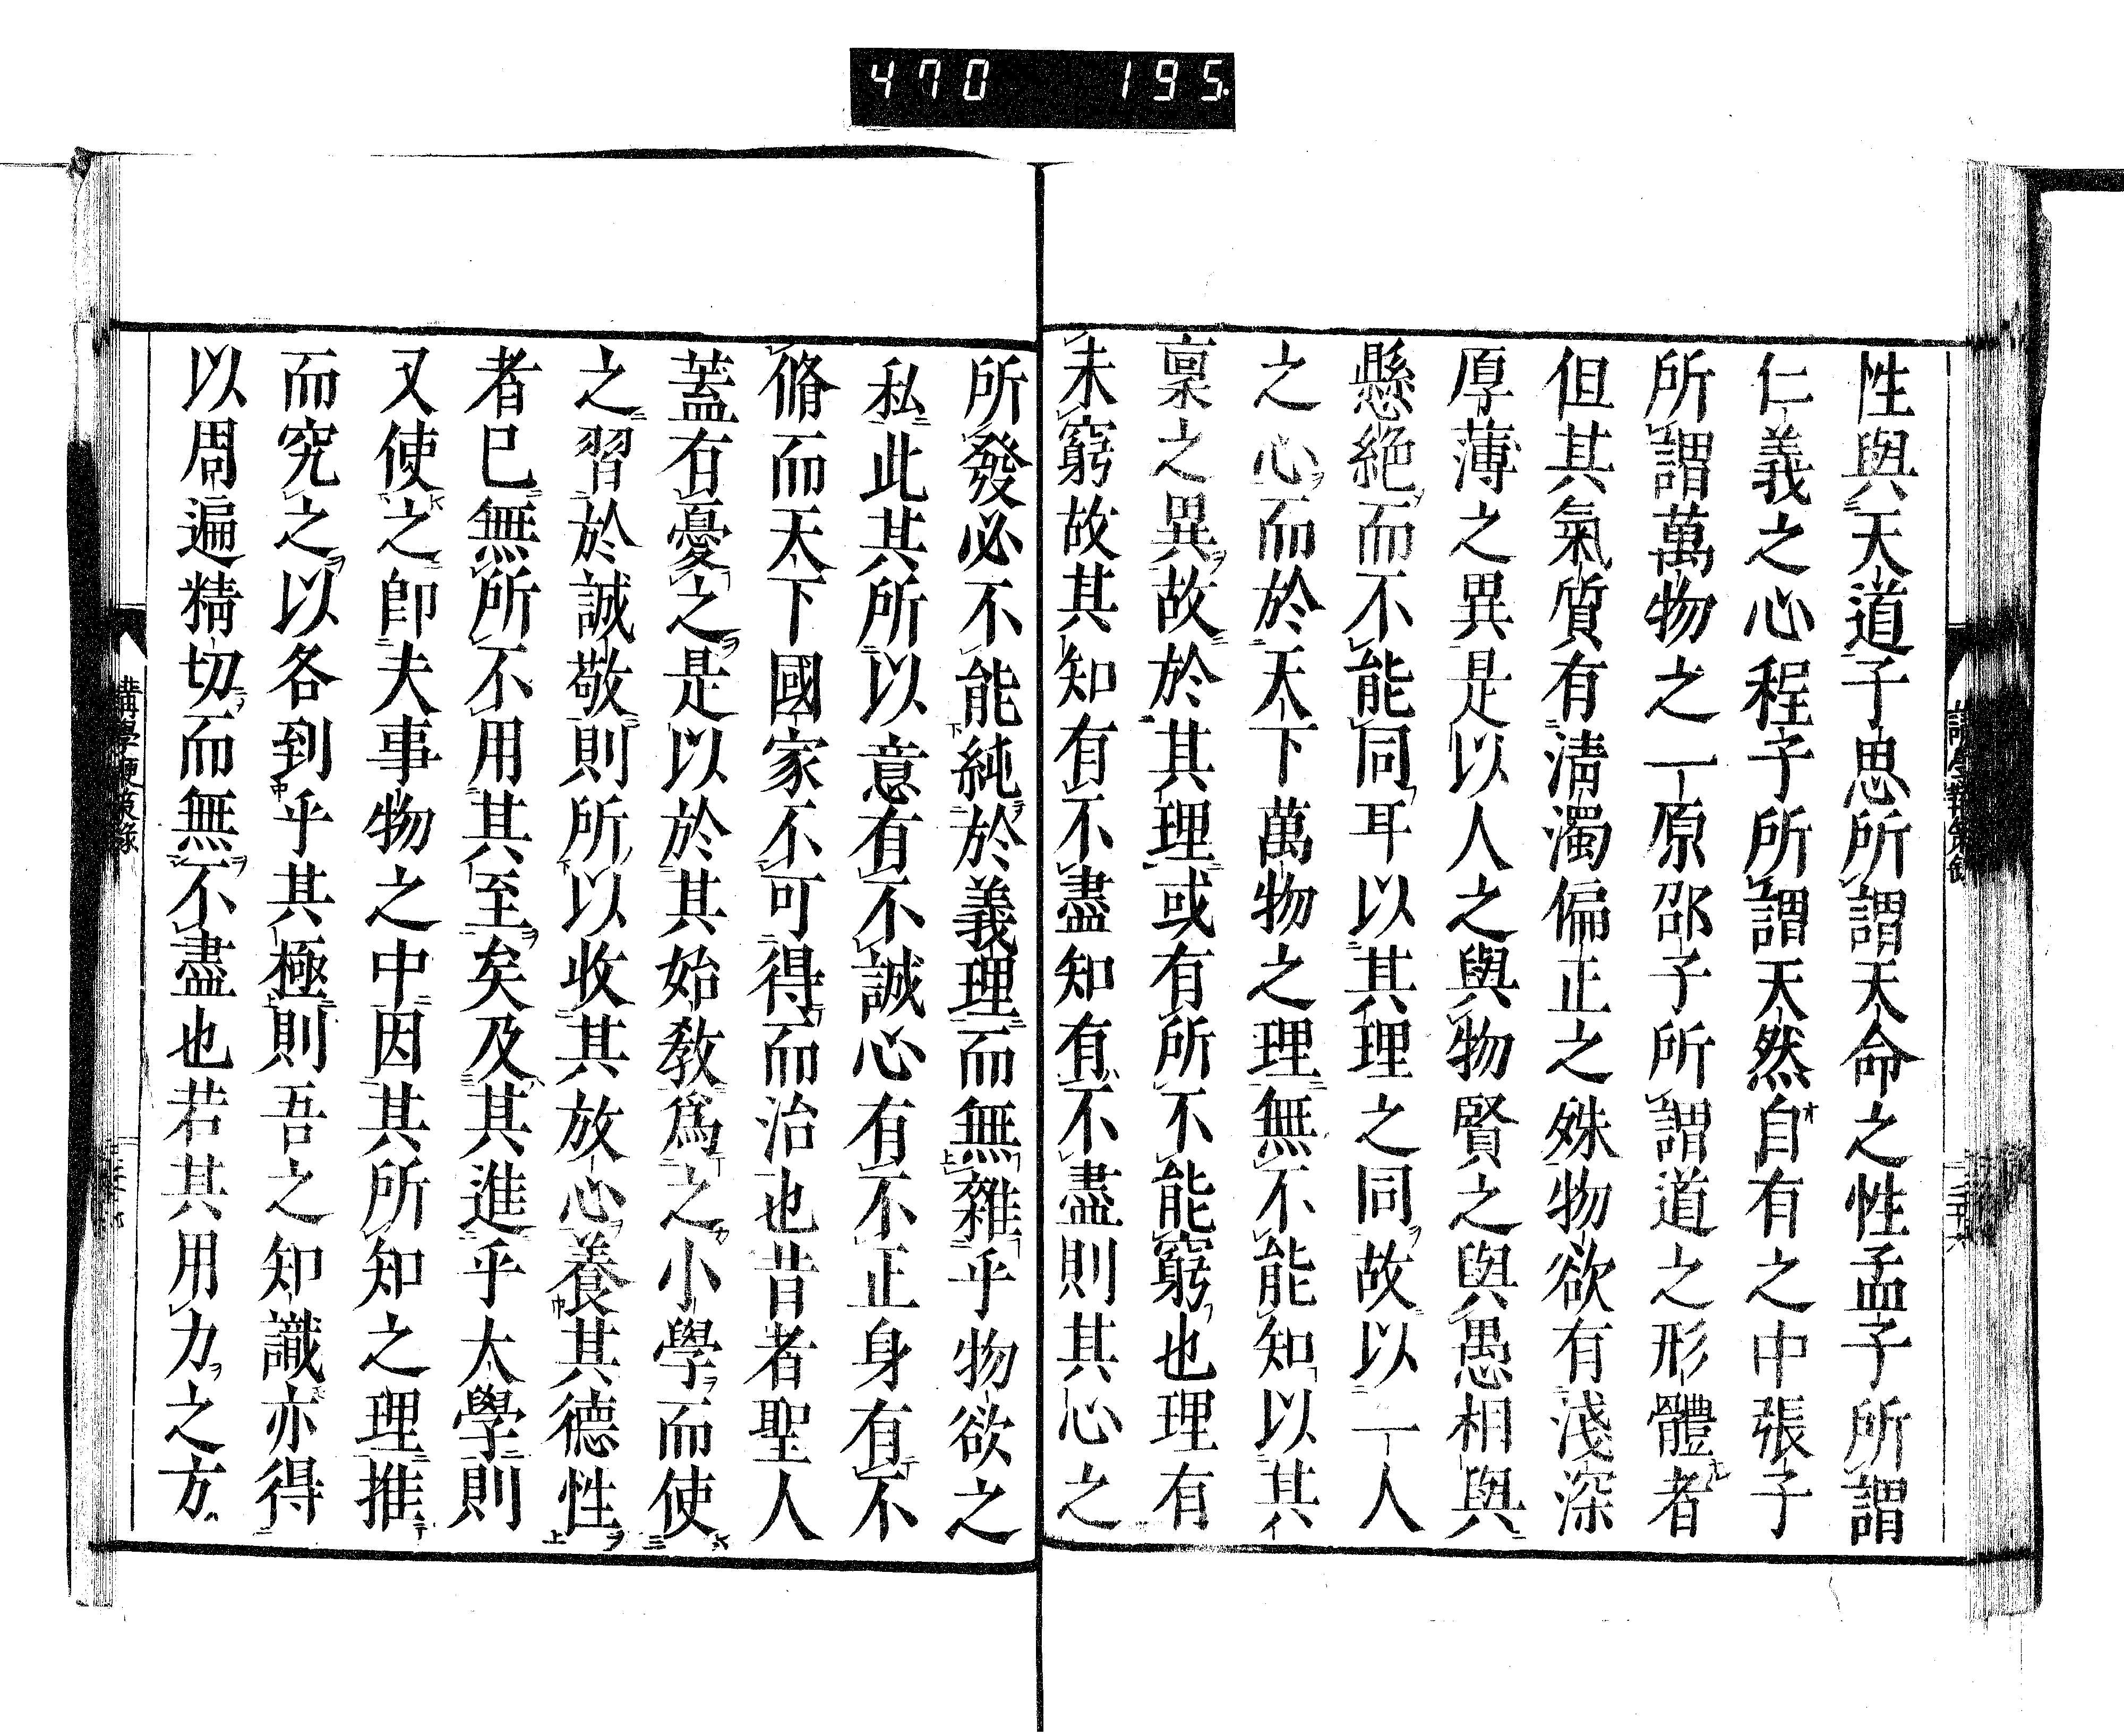 470 195
性與天道子思所謂天命之性孟子所謂
仁義之心程子所謂天然自有之中張子
所謂萬物之一原邵子所謂道之形體者
但其氣質有淸濁偏正之殊物欲有淺深
厚薄之異是以人之與物賢之與愚相與
懸絶而不能同耳以其理之同故以一人
之心而於天下萬物之理無不能知以其
稟之異故於其理或有所不能窮也理有
未窮故其知有不盡知有不盡則其心之
所發必不能純於義理而無雜乎物欲之
私此其所以意有不誠心有不正身有不
脩而天下國家不可得而治也昔者聖人
蓋有憂之是以於其始敎爲之小學而使
之習於誠敬則所以收其放心養其德性
者已無所不用其至矣及其進乎大學則
又使之卽夫事物之中因其所知之理推
而究之以各到乎其極則吾之知識亦得
以周遍精切而無不盡也若其用力之方
講學鞭策錄